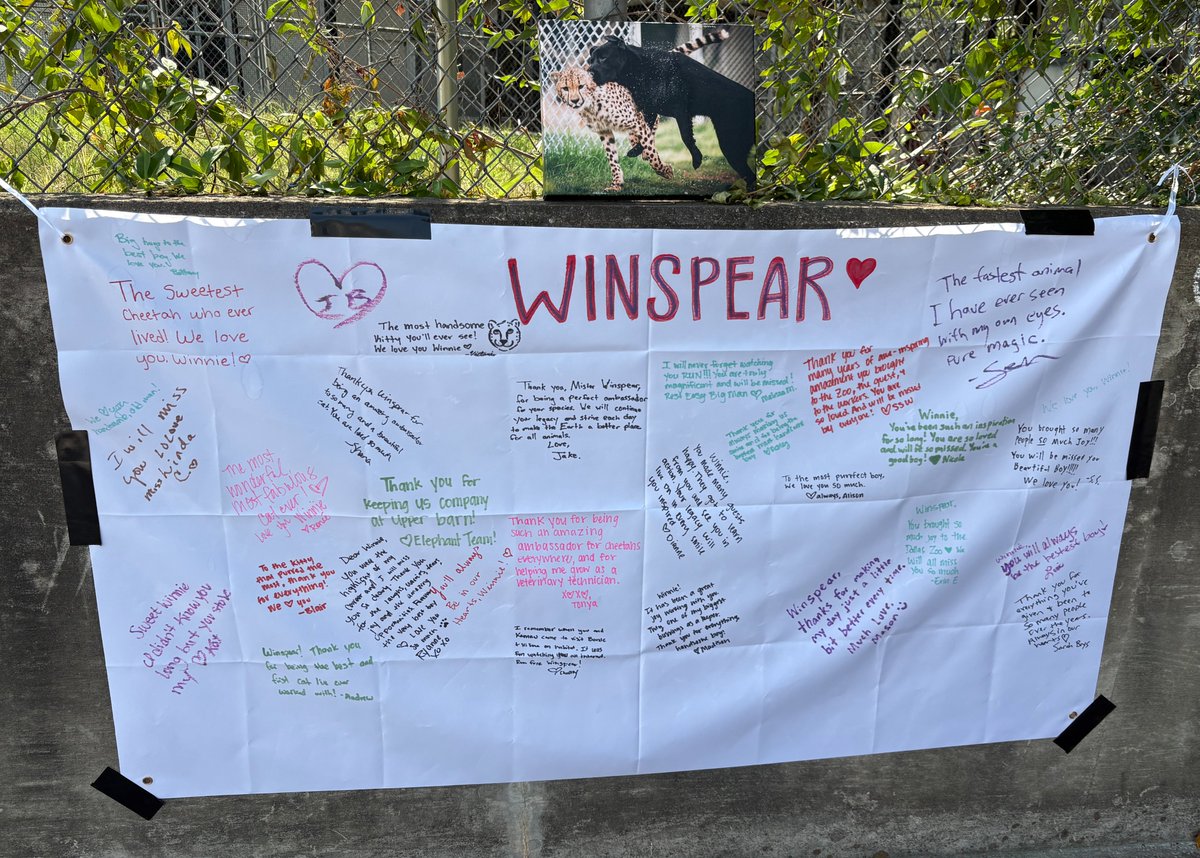 WINSPEAR
Big hugs to the
best boy. We
love you.
Brittany
The sweetest
Cheetah who ever
lived! We love
you, Winnie!
The most handsome
Kitty you'll ever see!
We love you Winnie
The fastest animal
I have ever seen
with my own eyes.
Pure magic.
Thank you Winspear for
being an amazing ambassador
to so many and a beautiful
cat. You are loved
I will miss
you. Love
miss Linda
Thank you, Mister Winspear,
for being a perfect ambassador
for your species. We will continue
your legacy and strive each day
to make the Earth a better place
for all animals.
Love,
Jake.
I will never forget watching
you RUN!!! You are truly
magnificent and will be missed!
Rest Easy Big Man
Thank you for
many years of awe-inspiring
amazement you brought
to the Zoo, the guest, &
to the workers. You are
so loved and will be missed
by everyone! SSW
Winnie,
You've been such an inspiration
for so long! You are so loved
and will be so missed. You're a
good boy! Nicole
We love you Winnie!
You brought so many
People so Much Joy!!!
You will be missed you
Beautiful Boy!!!!
We love you!
The most
wonderful
most fabulous
cat ever
love you Winnie
Thank you for
keeping us company
at Upper barn!
Elephant Team!
To the most purrfect boy.
We love you so much.
always, Alison
Winnie,
You made many guests
Winspear,
You brought so
much joy to the
Dallas Zoo We
will all miss
you so much
- Erin E
To the kitty
that purred the
most, thank you
for everything!
We you
-Blair
You will always
be in our
hearts, Winnie!
Thank you for being
such an amazing
ambassador for cheetahs
everywhere, and for
helping me grow as a
veterinary technician.
XOXO,
Tonya
Winnie,
you will always
be the bestest boy!
Sweet Winnie
I didn't know you
long but you stole
my
Winspear! Thank you
for being the best and
first cat I've ever
worked with! -Andrew
I remember when you and
Winnie!
It has been a great
joy working with you.
Thank you for everything,
handsome boy!
Madison
Winspear,
thanks for making
my day just a little
bit better every time.
Much love,
Mason
Thank you for
everything you've
given & been to
so many people
over the years.
Always in our
hearts
Sarah Beys